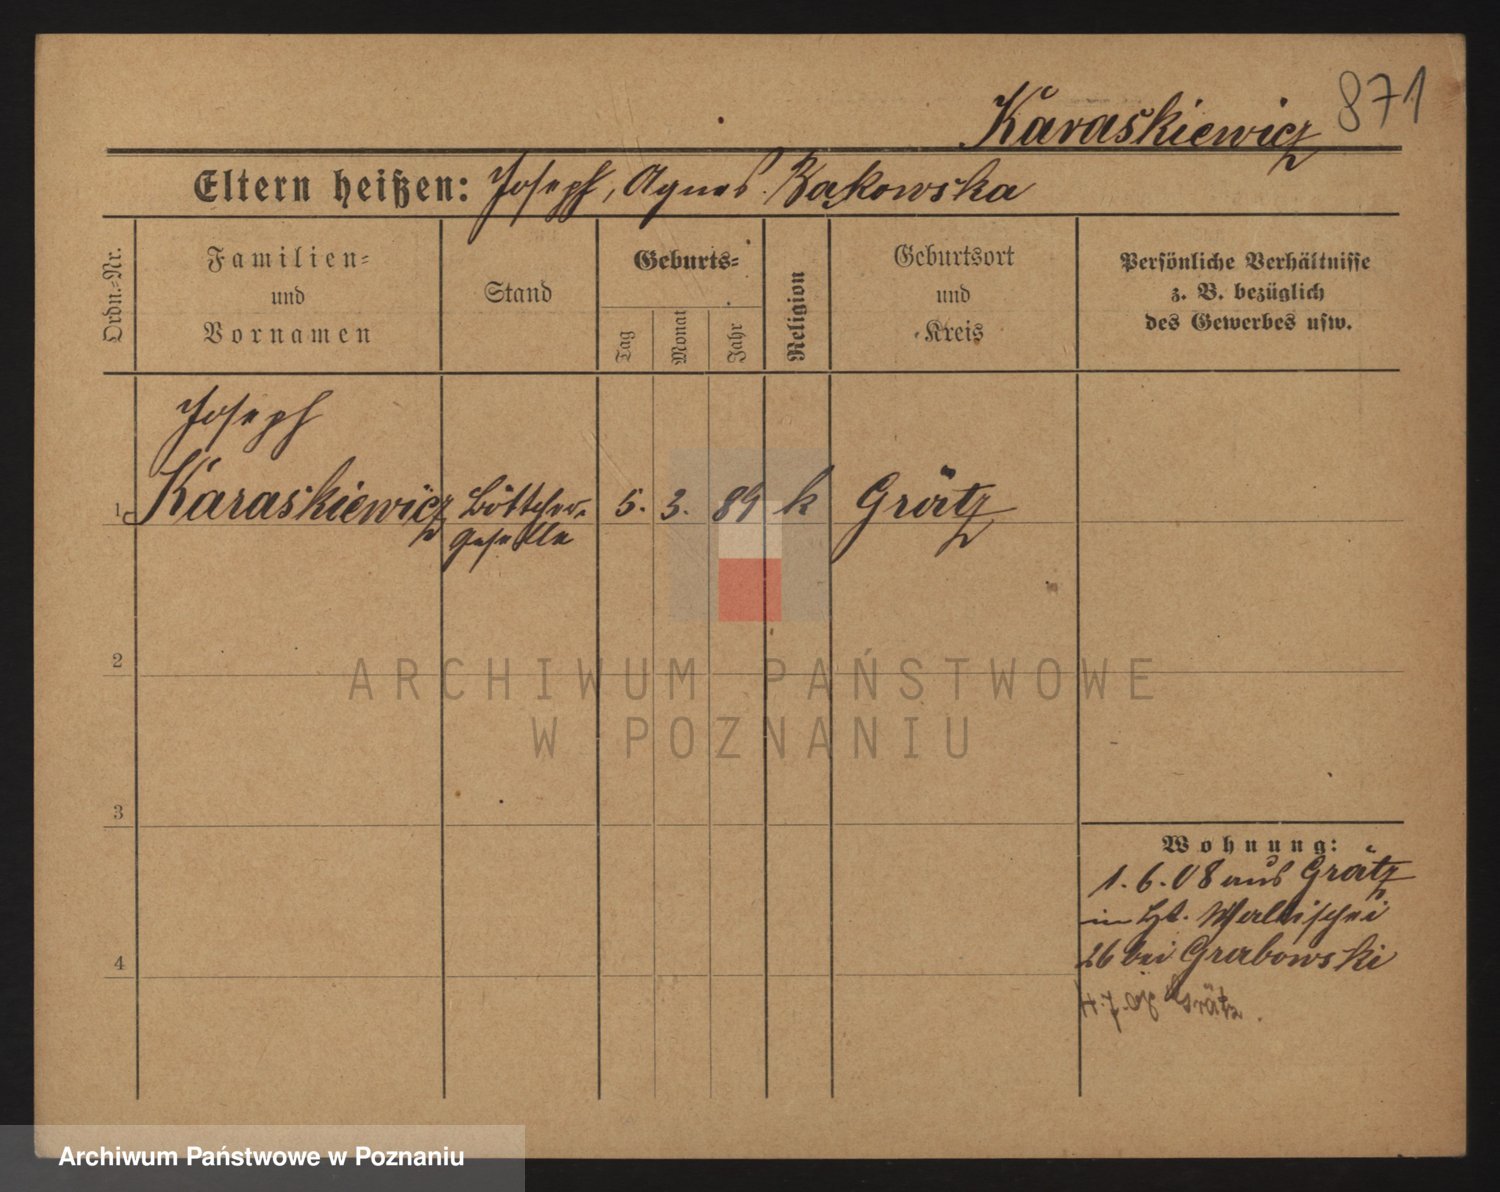 871
Karaskiewicz
Eltern heißen: Joseph, Agnes Bąkowska
Ordn.-Nr.
Familien-
und
Vornamen
Stand
Geburts-
Tag
Monat
Jahr
Religion
Geburtsort
und
Kreis
Persönliche Verhältnisse
z. B. bezüglich
des Gewerbes usw.
Joseph
1 Karaskiewicz Böttcher- 5. 3. 89 k Grätz
geselle
2
3
4
ARCHIWUM PAŃSTWOWE
W POZNANIU
Wohnung:
1.6.08 aus Grätz
in Wallischei
26 bei Grabowski
Grätz.
Archiwum Państwowe w Poznaniu